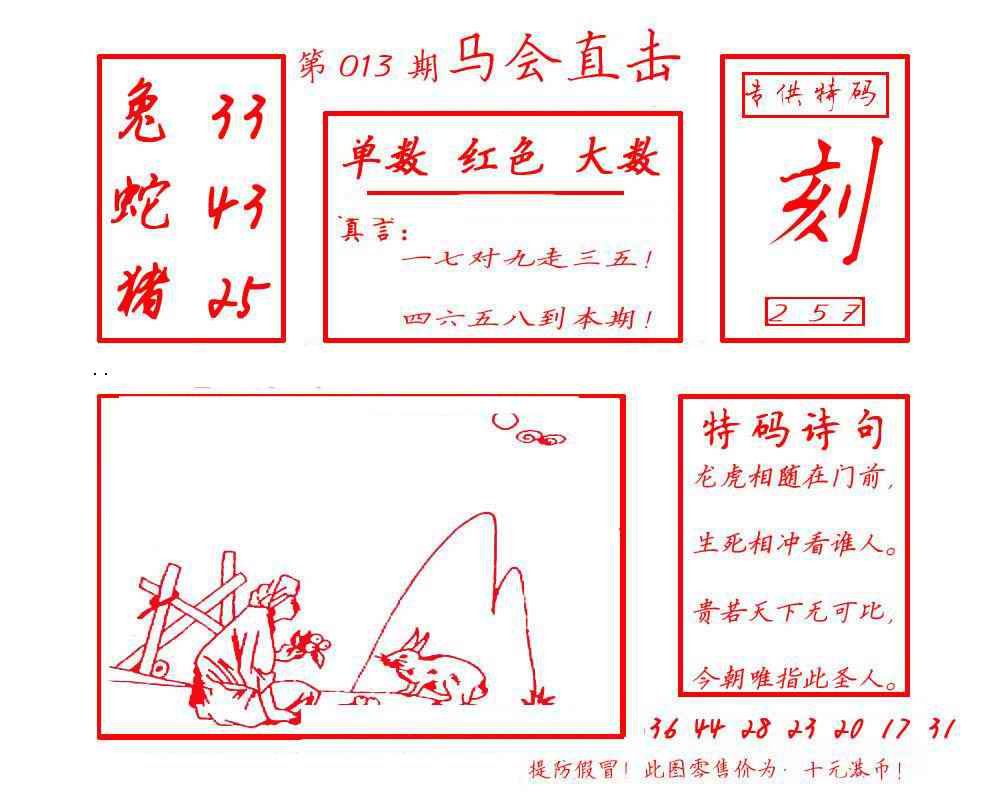 第 013 期 马会直击
兔 33
蛇 43
猪 25
单数 红色 大数
真言：
一七对九走三五！
四六五八到本期！
专供特码
刻
2 5 7
特码诗句
龙虎相随在门前，
生死相冲看谁人。
贵若天下无可比，
今朝唯指此圣人。
36 44 28 23 20 17 31
提防假冒！此图零售价为·十元港币！